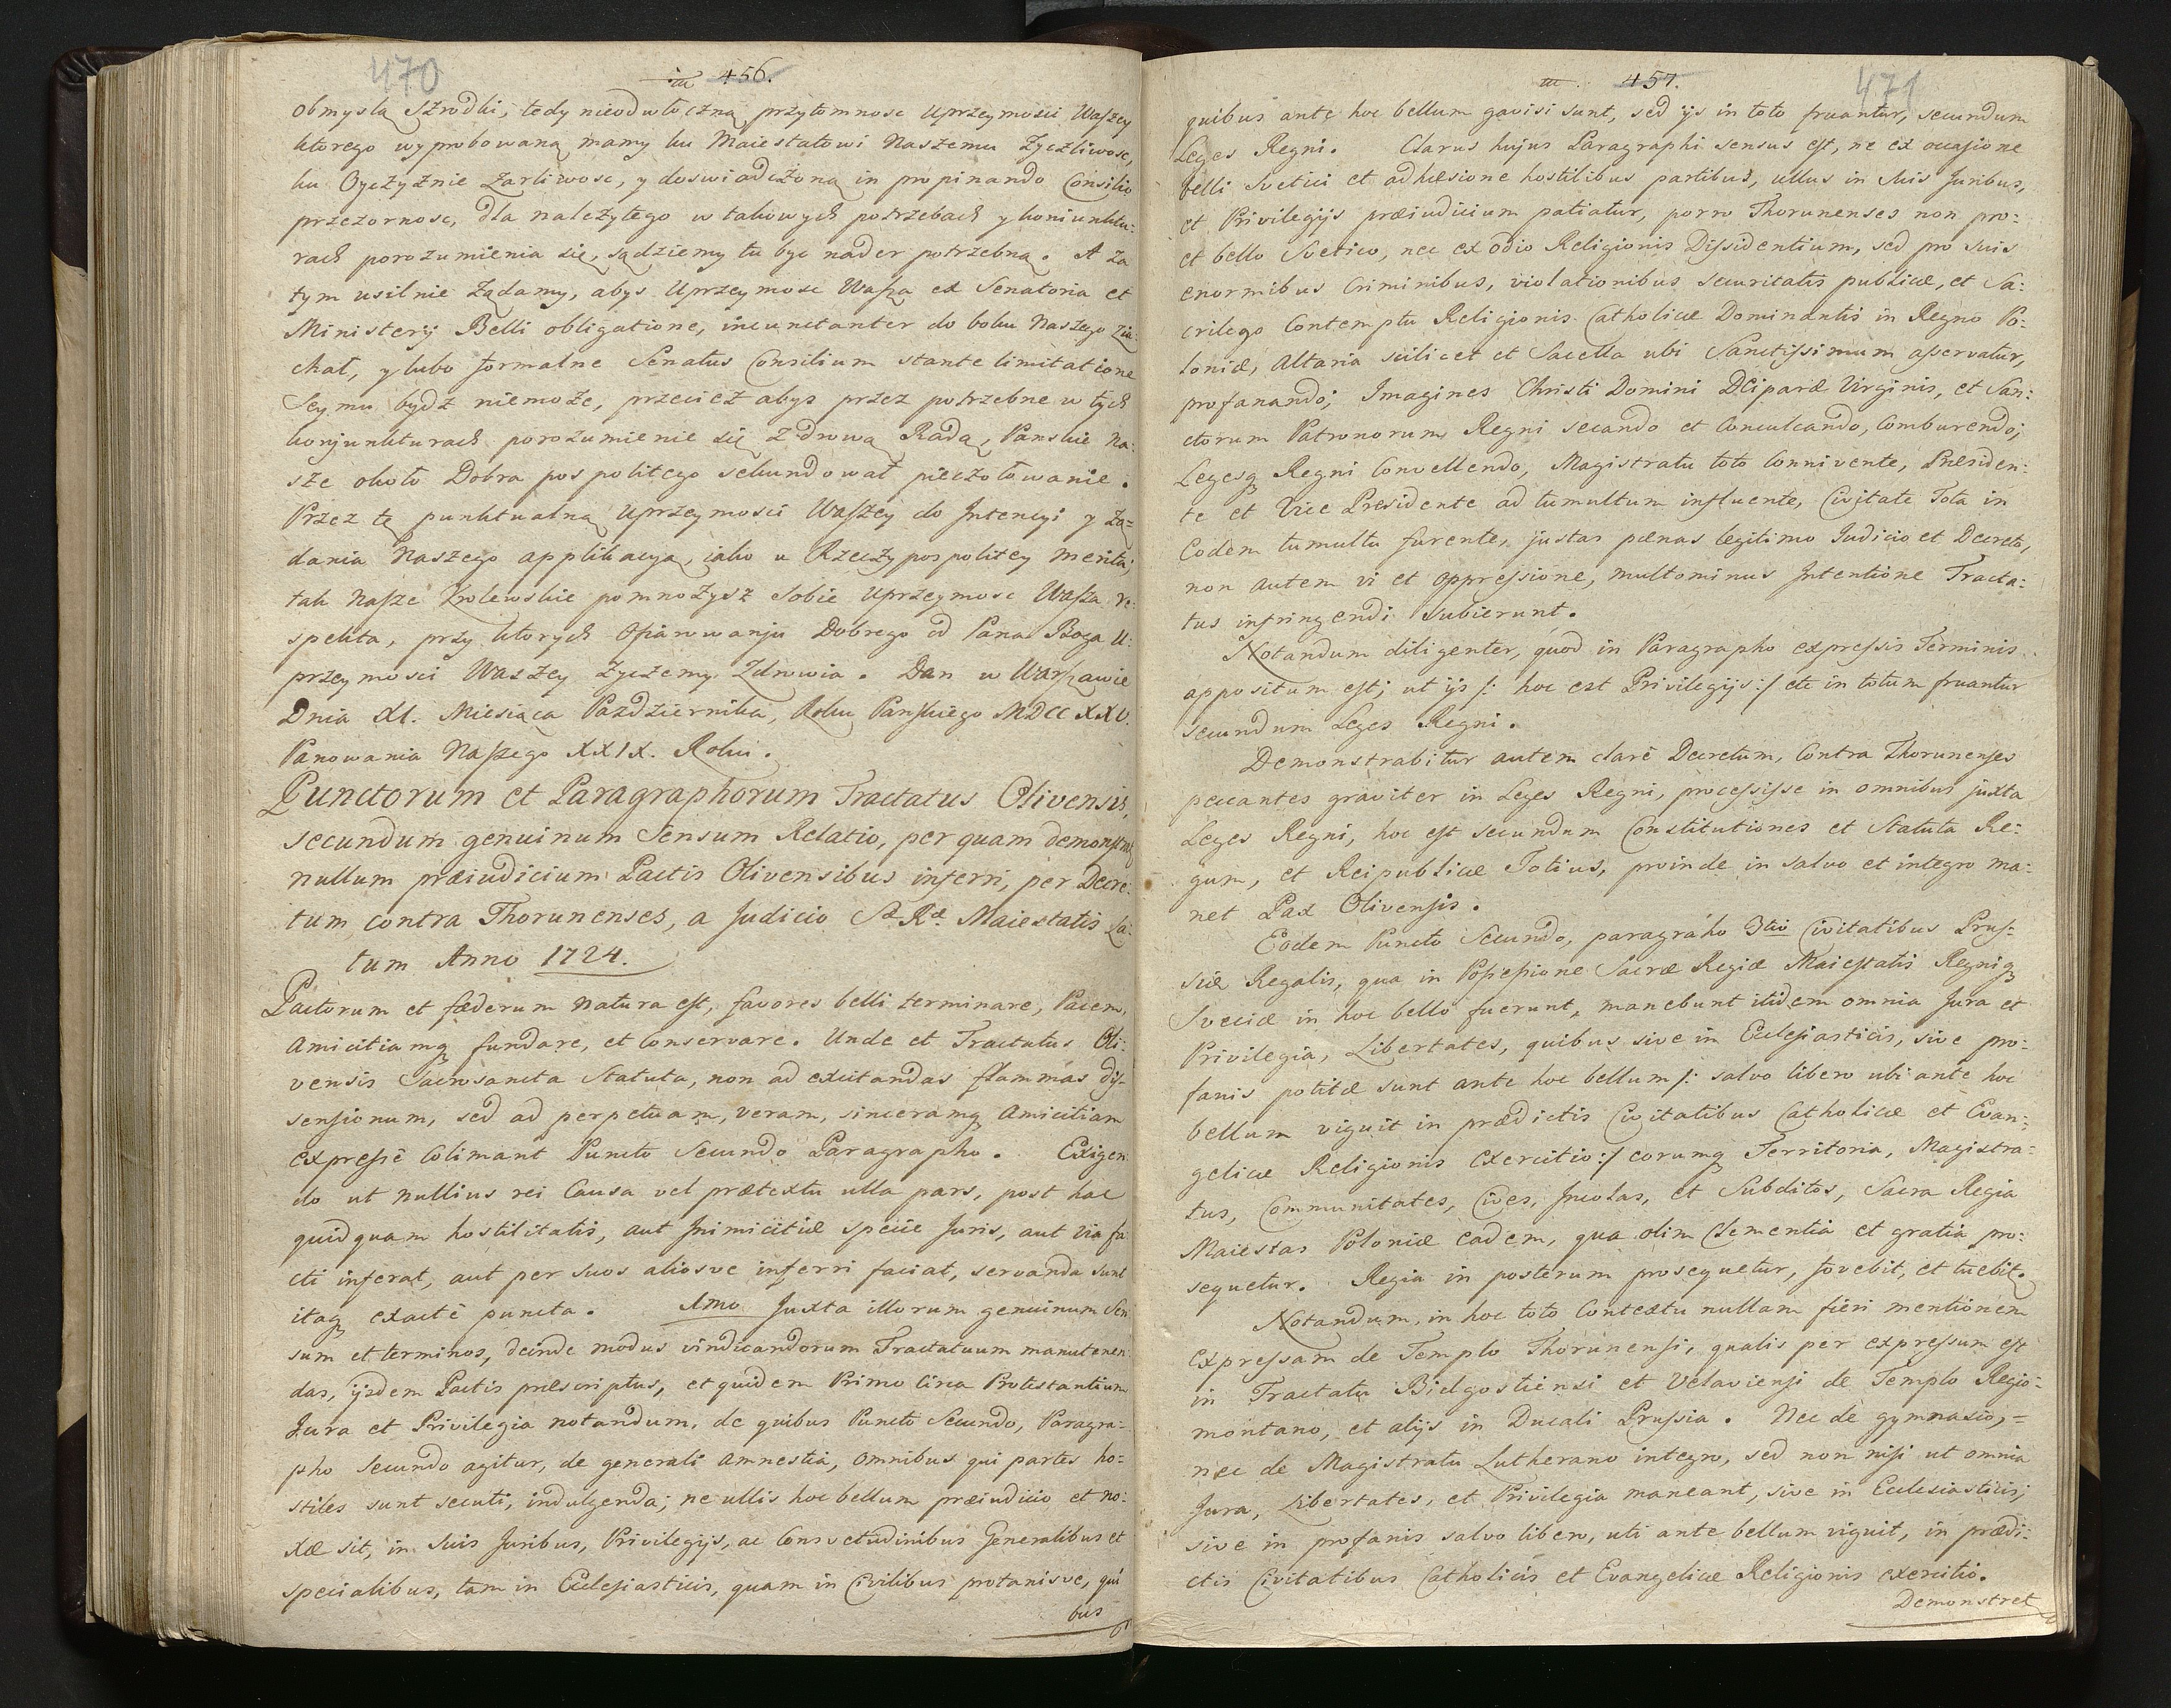 470
456.
obmyslą szrodki, tedy nieodwłoczną przytomnosc Uprzeymosci Waszey
ktorego wyprobowaną mamy ku Maiestatowi Naszemu Zyczliwosc,
ku Oyczyznie Zarliwosc, y doswiadczoną in propinando Consilio
przezornosc, dla nalezytego w takowych potrzebach y koniunktu:
rach porozumienia się, sądziemy tu byc nader potrzebną. A za
tym usilnie Ządamy, abys Uprzeymosc Wasza ex Senatoria et
Ministerij Belli obligatione, incunctanter do boku Naszego zia:
chał, y lubo formalne Senatus Consilium stante limitatione
Seymu bydz niemoże, przeciez abys przez potrzebne w tych
konjunkturach porozumienie się zdrową Radą, Panskie na:
sze około Dobra pospolitego sekundował pieczołowanie.
Przez tę punktualną Uprzeymosci Waszey do Intencyi y żą=
dania Naszego applikacyą, iako u Rzeczypospolitey merita;
tak Nasze Krolewskie pomnożysz sobie Uprzeymosc Wasza re:
spekta, przy ktorych Ofiarowaniu Dobrego od Pana Boga U:
przeymosci Waszey życzemy Zdrowia. Dan w Warszawie
Dnia XI. Miesiąca Pazdziernika, Roku Panskiego MDCCXXV.
Panowania Naszego XXIX. Roku.
Punctorum et Paragraphorum Tractatus Olivensis,
secundum genuinum Sensum Relatio, per quam demonstrat
nullum præiudicium Pactis Olivensibus inferri, per Decre:
tum contra Thorunenses, a Judicio Sæ Ræ Maiestatis La:
tum Anno 1724.
Pactorum et fæderum natura est, favores belli terminare, Pacem,
Amicitiamq fundare, et conservare. Unde et Tractatus Oli:
vensis Sacrosancta Statuta, non ad excitandas flammas dis:
sensionum, sed ad perpetuam, veram, sinceramq Amicitiam
expressè Colimant Puncto Secundo Paragrapho. Exigen
do ut nullius rei Causa vel prætextu ulla pars, post hac
quidquam hostilitatis, aut Inimicitiæ specie Juris, aut via fa
cti inferat, aut per suos aliosve inferri faciat, servanda sunt
itaq exactè puncta. Imo Juxta illorum genuinum Sen
sum et terminos, deinde modus vindicandorum Tractatuum manutenen:
das, ijsdem Pactis præscriptus, et quidem Primo Circa Protestantium
Jura et Privilegia notandum, de quibus Puncto Secundo, Paragra:
pho Secundo agitur, de generali Amnestia, omnibus qui partes ho:
stiles sunt secuti, indulgenda; ne ullis hoc bellum præiudicio et no:
xæ sit, in Suis Juribus, Privilegijs, ac Consvetudinibus Generalibus et
specialibus, tam in Ecclesiasticis, quam in Civilibus protanisve, qui
bus
457.
471
quibus ante hoc bellum gavisi sunt, sed ijs in toto fruantur, secundum
Leges Regni. Clarus hujus Paragraphi sensus est, ne ex occasione
belli Svetici et adhæsione hostilibus partibus, ullus in Suis Juribus,
et Privilegijs præiudicium patiatur, porro Thorunenses non pro:
et bello Svetico, nec ex odio Religionis Dissidentium, sed pro suis
enormibus Criminibus, violationibus securitatis publicæ, et Sa:
crilego Contemptu Religionis Catholicæ Dominantis in Regno Po:
loniæ, Altaria scilicet et Sacella ubi Sanctissimum asservatur,
profanando; Imagines Christi Domini Deiparæ Virginis, et San:
ctorum Patronorum Regni secando et Conculcando, Comburendo;
Legesq Regni Convellendo, Magistratu toto Connivente, Præsiden:
te et Vice Præsidente ad tumultum influente, Civitate Tota in
Eodem tumultu furente, justas pænas legitimo Judicio et Decreto,
non autem vi et oppressione, multominus Intentione Tracta:
tus infringendi subierunt.
Notandum diligenter, quod in Paragrapho expressis Terminis
appositum est; ut ijs /: hoc est Privilegijs :/ etc in totum fruantur
secundum Leges Regni.
Demonstrabitur autem clarè Decretum, Contra Thorunenses
peccantes graviter in Leges Regni, processisse in omnibus juxta
Leges Regni, hoc est secundum Constitutiones et Statuta Re:
gum, et Reipublicæ Totius, proinde in salvo et integro ma:
net Pax Olivensis.
Eodem Puncto Secundo, paragraho 3tio Civitatibus Prus:
siæ Regalis, qua in Possessione Sacræ Regiæ Maiestatis Regniq
Sveciæ in hoc bello fuerunt, manebunt itidem omnia Jura et
Privilegia, Libertates, quibus sive in Ecclesiasticis, sive pro:
fanis potitæ sunt ante hoc bellum /: salvo libero ubi ante hoc
bellum viguit in prædictis Civitatibus Catholicæ et Evan:
gelicæ Religionis Exercitio :/ eorumq Territoria, Magistra:
tus, Communitates, Cives, Incolas, et Subditos, Sacra Regia
Maiestas Poloniæ eadem, qua olim Clementia et gratia pro:
sequetur. Regia in posterum prosequetur, fovebit, et tuebit.
Notandum, in hoc toto Contextu nullam fieri mentionem
expressam de Templo Thorunensi, qualis per expressum est
in Tractatu Bidgostiensi et Velaviensi de Templo Regio:
montano, et alijs in Ducali Prussia. Nec de gymnasio,=
nec de Magistratu Lutherano integro, sed non nisi ut omnia
Jura, Libertates, et Privilegia maneant, sive in Ecclesiasticis;
sive in profanis salvo libero, uti ante bellum viguit, in prædi:
ctis Civitatibus Catholicis et Evangelicæ Religionis exercitio.
Demonstret